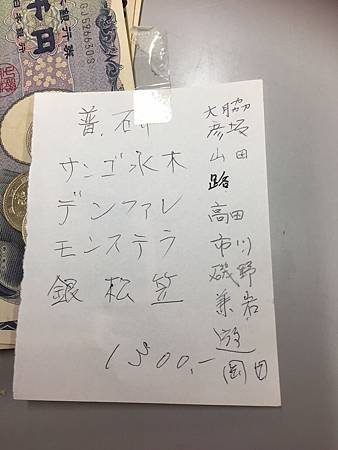 普.石付
サンゴ水木
デンファレ
モンステラ
銀松笠
1300.-
大脇
彦坂
山田
路
高田
市川
磯野
兼岩
遊
岡田
日本銀行券
千円
GJ526630S